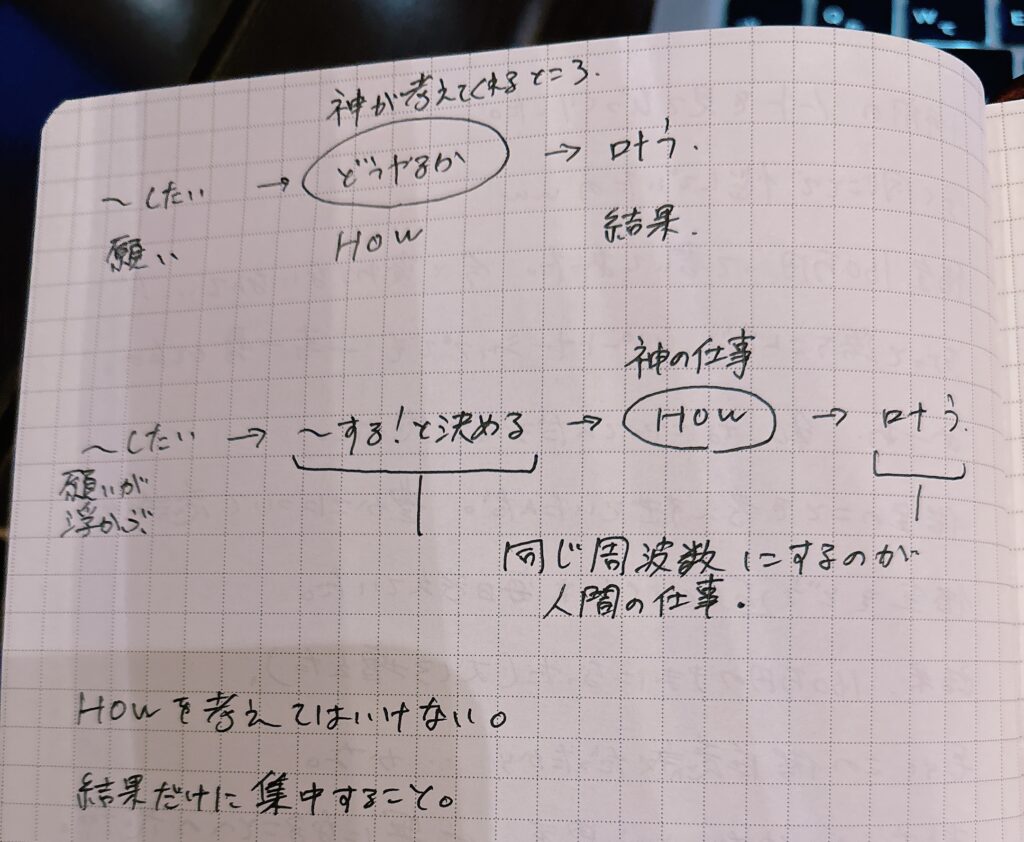 神が考えてくれるところ.
〜したい → どうやるか → 叶う.
願い HOW 結果.
神の仕事
〜したい → 〜する!と決める → HOW → 叶う.
願いが
浮かぶ
同じ周波数にするのが
人間の仕事.
HOWを考えてはいけない。
結果だけに集中すること。